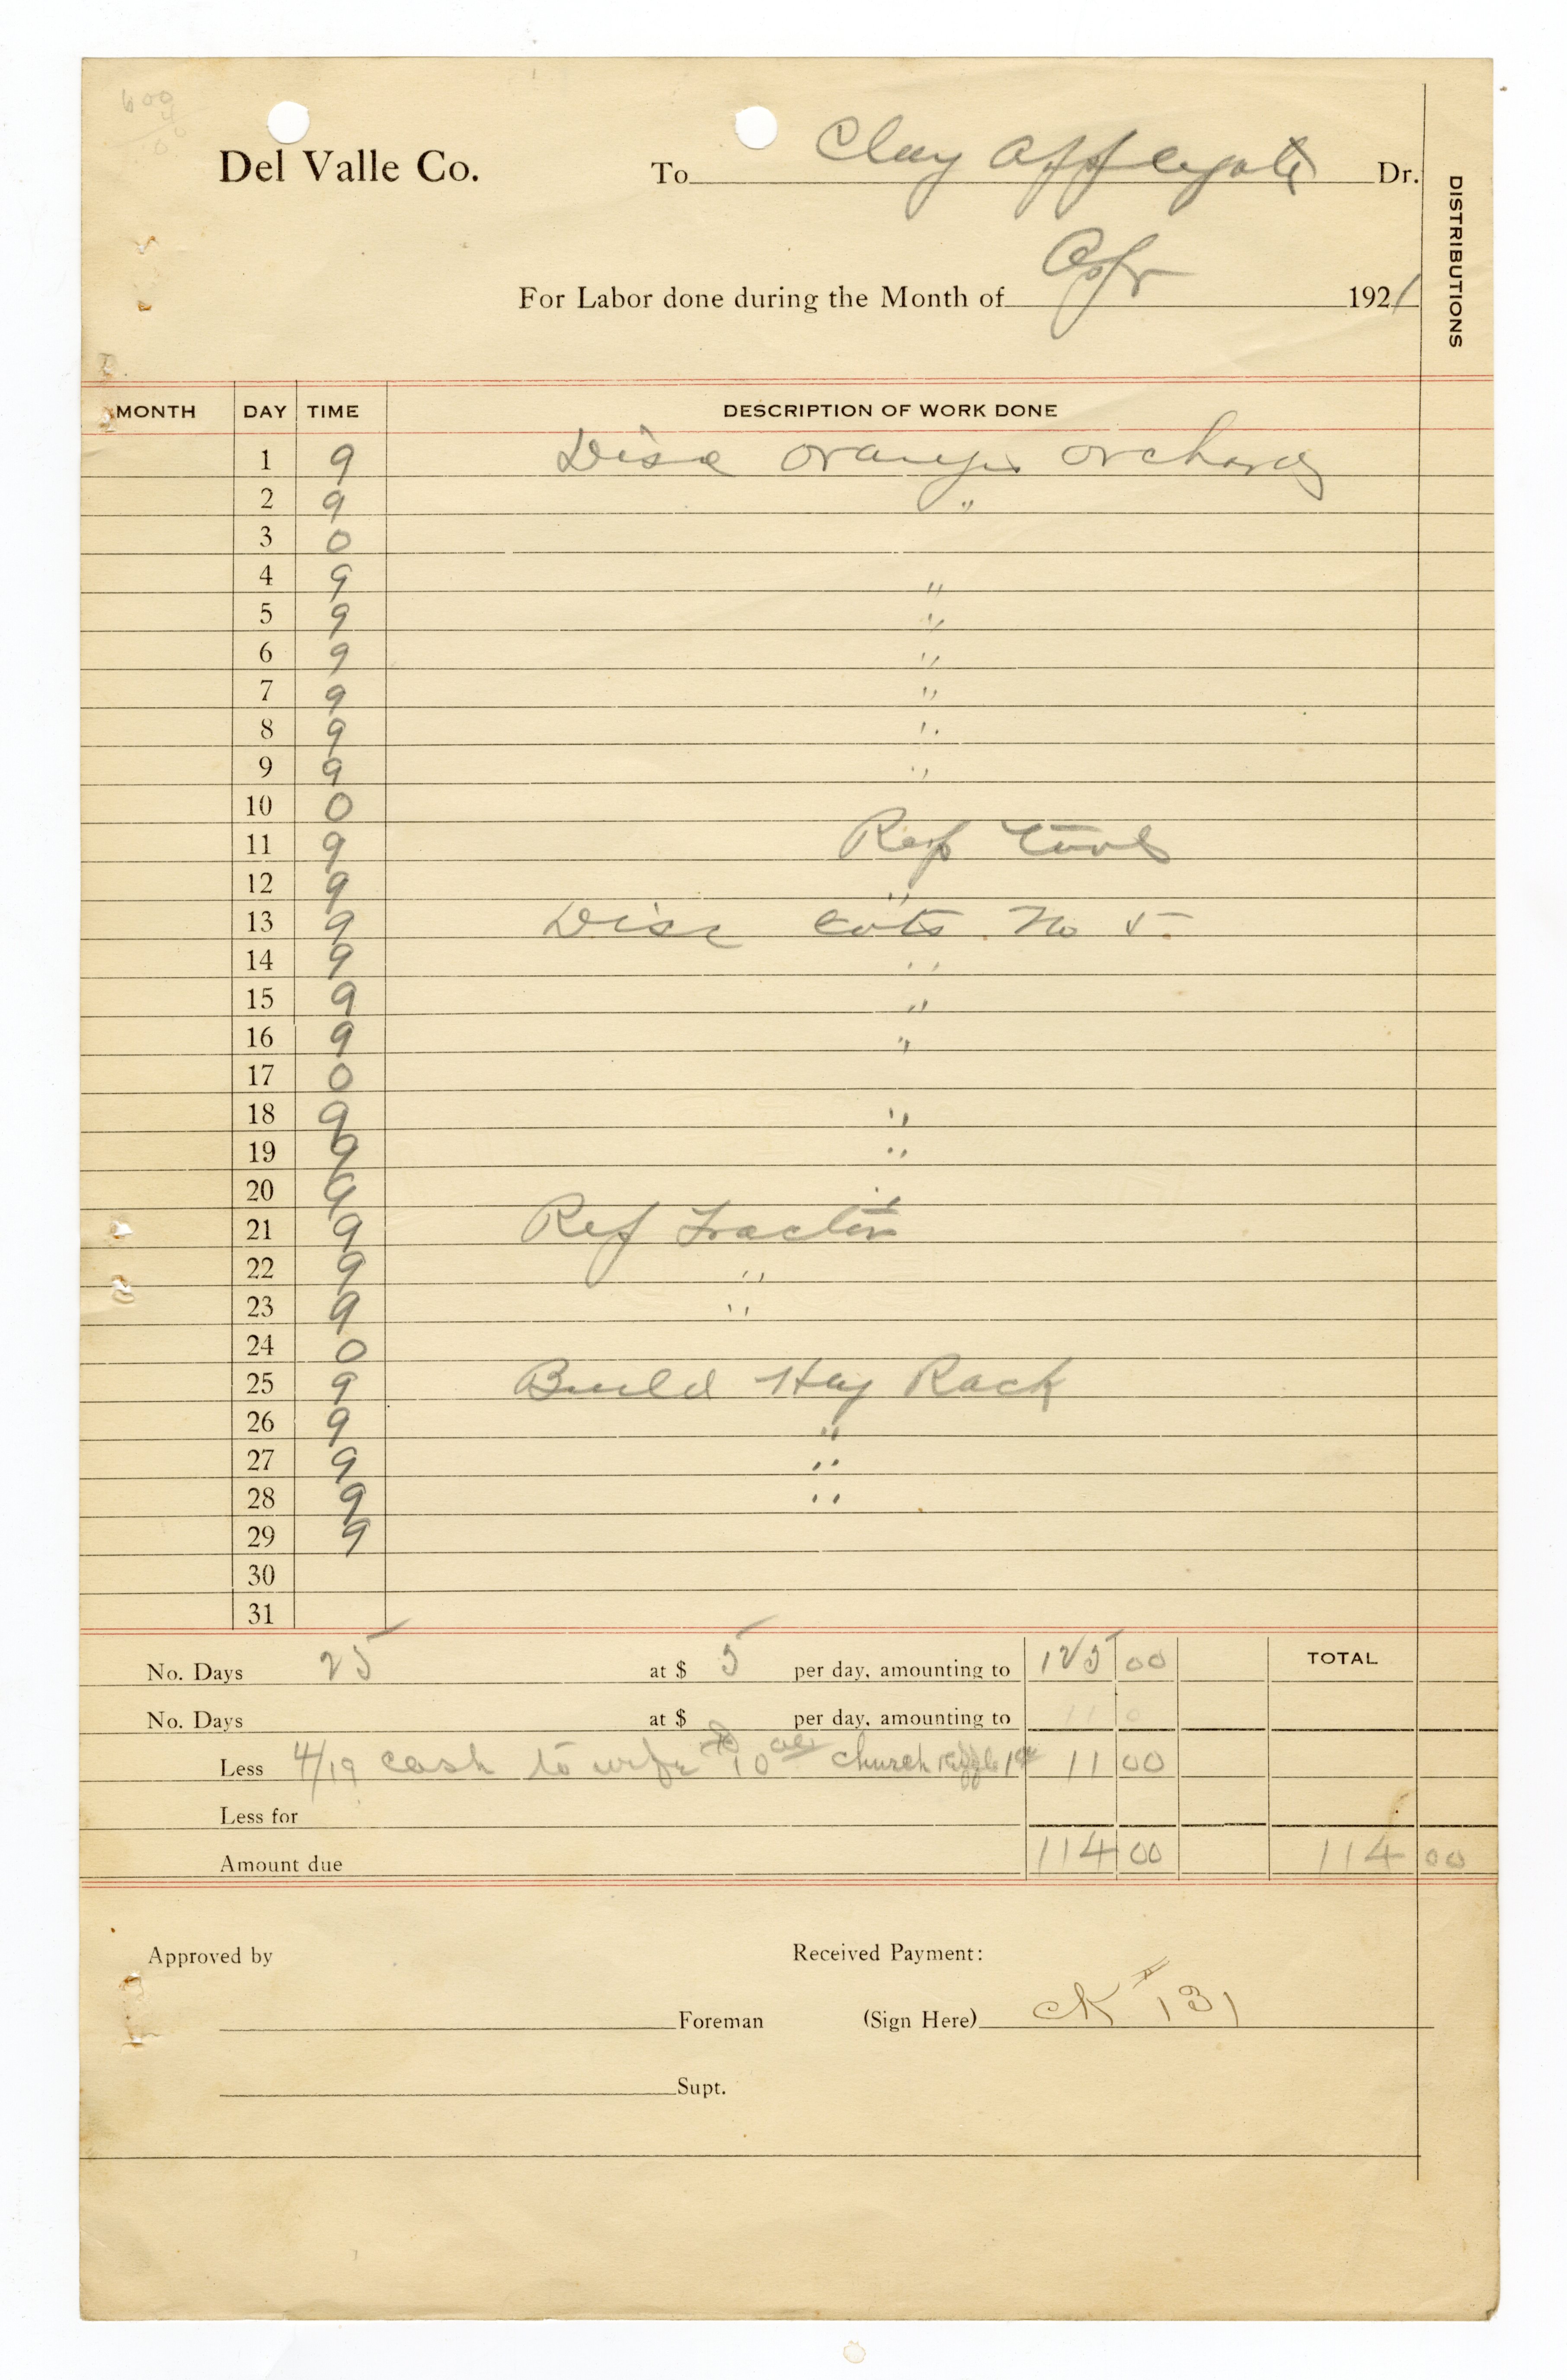 600
Del Valle Co. To Clay Applegate Dr.
DISTRIBUTIONS
For Labor done during the Month of Apr 1921
MONTH DAY TIME DESCRIPTION OF WORK DONE
1 9 Disc oranges orchard
2 9 "
3 0
4 9 "
5 9 "
6 9 "
7 9 "
8 9 "
9 9 "
10 0
11 9 Rep Tools
12 9 "
13 9 Disc cots No 5
14 9 "
15 9 "
16 9 "
17 0
18 9 "
19 9 "
20 9 "
21 9 Rep Tractor
22 9 "
23 9 "
24 0
25 9 Build Hay Rack
26 9 "
27 9 "
28 9 "
29 9
30
31
No. Days 25 at $ 5 per day, amounting to 125 00 TOTAL
No. Days at $ per day, amounting to 11 0
Less 4/19 cash to wife 10 church raffle 1 11 00
Less for
Amount due 114 00 114 00
Approved by Received Payment:
Foreman (Sign Here) CK # 131
Supt.